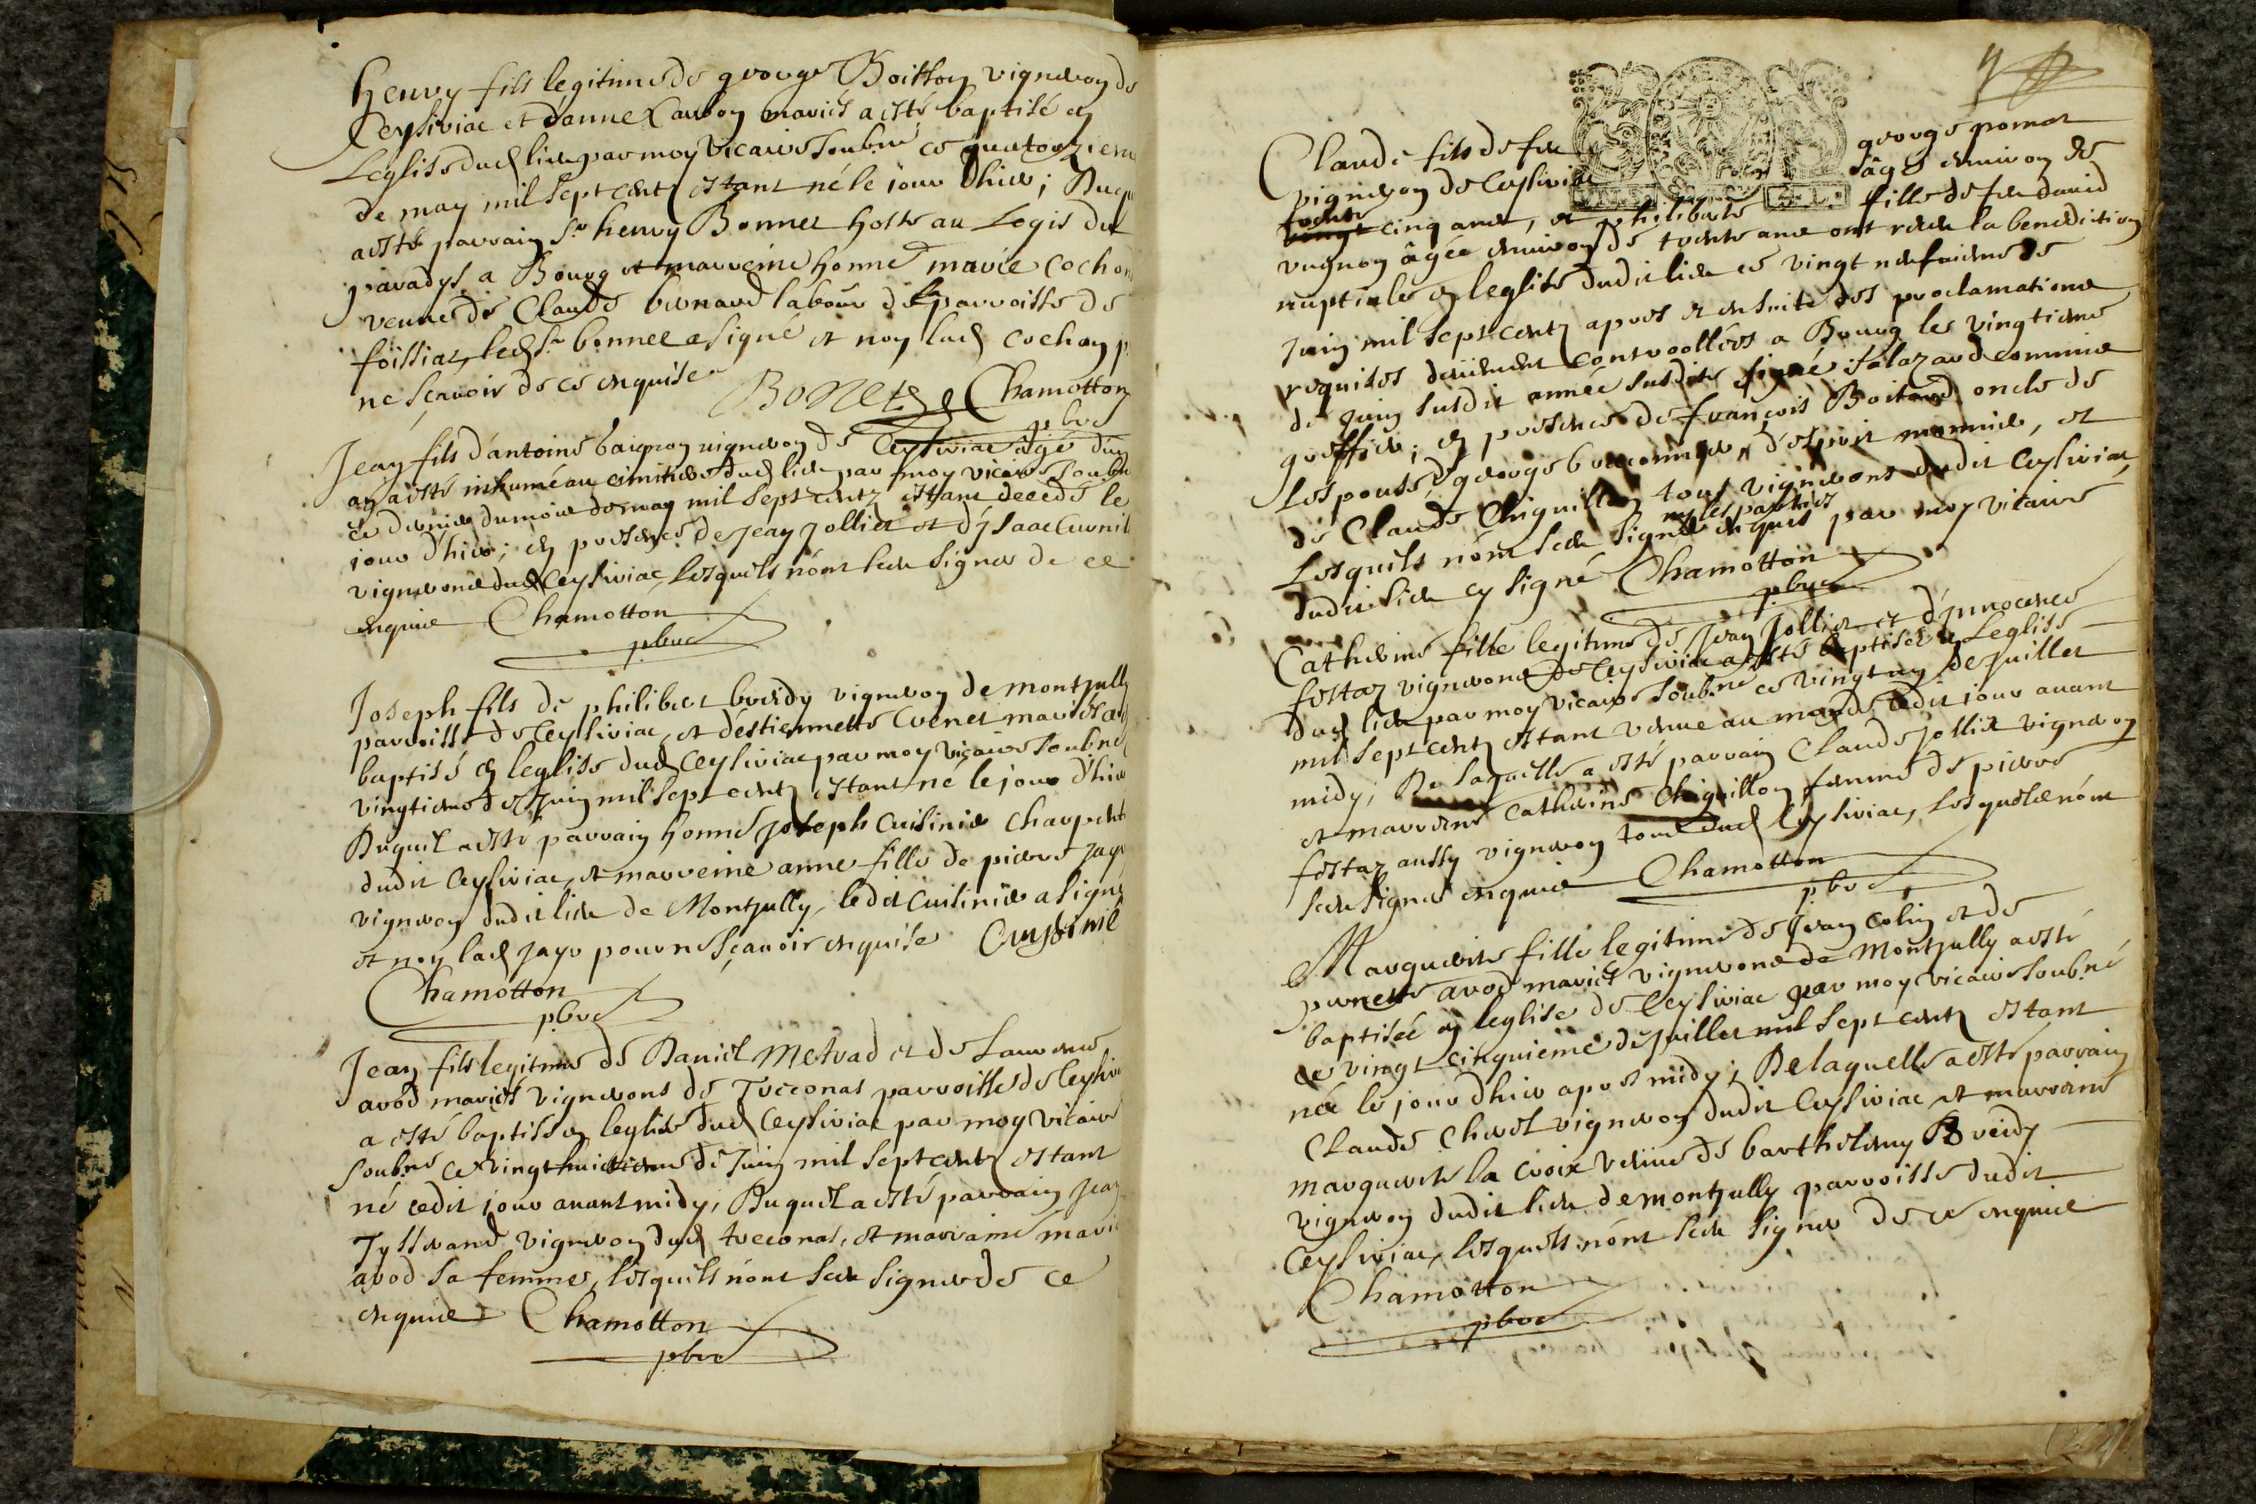 Henry fils legitime de george Boisson vigneron de
Ceysiriac et d'anne Carbon mariés a esté baptisé en
Leglise dud lieu par moy vicaire soubné ce quatorzieme
de may mil sept centz estant né le jour d'hier; Duquel
a esté parrain Sr henry Bonnet hoste au Logis du
paradys a Bourg et marreine honne marie cochon
veuue de Claude bernard labour de la parroisse de
foissiaz, led Sr bonnet a signé et non lad cochon p
ne scauoir de ce enquise
Bonet Chamotton
pbre
Jean fils d'antoine baignon vigneron de Ceysiriac agé d'un
an a esté inhumé au cimitiere dud lieu par moy vicaire soubné
ce dernier du mois de may mil sept centz estant decedé le
jour d'hier; en presence de Jean Jollier et d'Isaac Curnil
vignerons dud Ceysiriac, lesquels n'ont sceu signer de ce
enquis Chamotton
pbre
Joseph fils de philibert breidy vigneron de montjully
parroisse de Ceysiriac, et d'estiennette Cvenet mariés a
baptisé en leglise dud Ceysiriac par moy vicaire soubné
vingtieme de Juin mil sept centz estant né le jour d'hier
Duquel a esté parrain honne Joseph Cuisinier charpent
dudit Ceysiriac, et marreine anne fille de pierre Jayr
vigneron dudit lieu de Montjully, ledit Cuisinier a signé
et non lad Jayr pour ne sçauoir enquise Cuysinié
Chamotton
pbre
Jean fils legitime de Daniel Metrad et de Laurence
avod mariés vignerons de Treconas parroisse de Ceysiri
a esté baptisé en leglise dud Ceysiriac par moy vicaire
soubné ce vingt huictieme de Juin mil sept centz estant
né cedit jour auant midy, Duquel a esté parrain Jean
Tysserand vigneron dud treconas, et marraine marie
avod sa femme, lesquels n'ont sceu signer de ce
enquis Chamotton
pbre
Claude fils de feu george pomat
vigneron de Ceysiriac âgé enuiron de
trente cinq ans, et philiberte fille de feu david
vugnon âgée enuiron de trente ans ont receu la benediction
nuptiale en leglise dudit lieu ce vingt neufuieme de
Juin mil sept centz apres et ensuite des proclamations
requises deuement controollées a Bourg le vingtieme
de Juin susdit année susdite signé salazard commis
greffier; en presence de françois Boitard oncle de
lespouse, george , desprit monnier, et
de Claude Chiguillon tous vignerons dudit Ceysiriac,
ny les parties
Lesquels n'ont sceu signer enquis par moy vicaire
dudit lieu cy signé Chamotton
pbre
Catherine fille legitime de Jean Jollier et d'Innocence
festaz vignerons de Ceysiriac a esté baptisée en Leglise
dud lieu par moy vicaire soubné ce vingt un de Juillet
mil sept centz estant venue au monde ledit jour auant
midy; De laquelle a esté parrain Claude Jollier vigneron
et marreine Catherine Chiguillon femme de pierre
festaz aussy vigneron tous dud Ceysiriac, lesquels n'ont
sceu signer enquis Chamotton
pbre
Marguerite fille legitime de Jean Colin et de
pernette avod mariés vignerons de Montjully a esté
baptisée en leglise de Ceysiriac par moy vicaire soubné
ce vingt cinquieme de Juillet mil sept centz estant
née le jour d'hier apres midy; De laquelle a esté parrain
Claude Chevel vigneron dudit Ceysiriac et marreine
marguerite la croix veuue de barthelemy Breidy
vigneron dudit lieu de montjully parroisse dudit
Ceysiriac, lesquels n'ont sceu signer de ce enquis
Chamotton
pbre